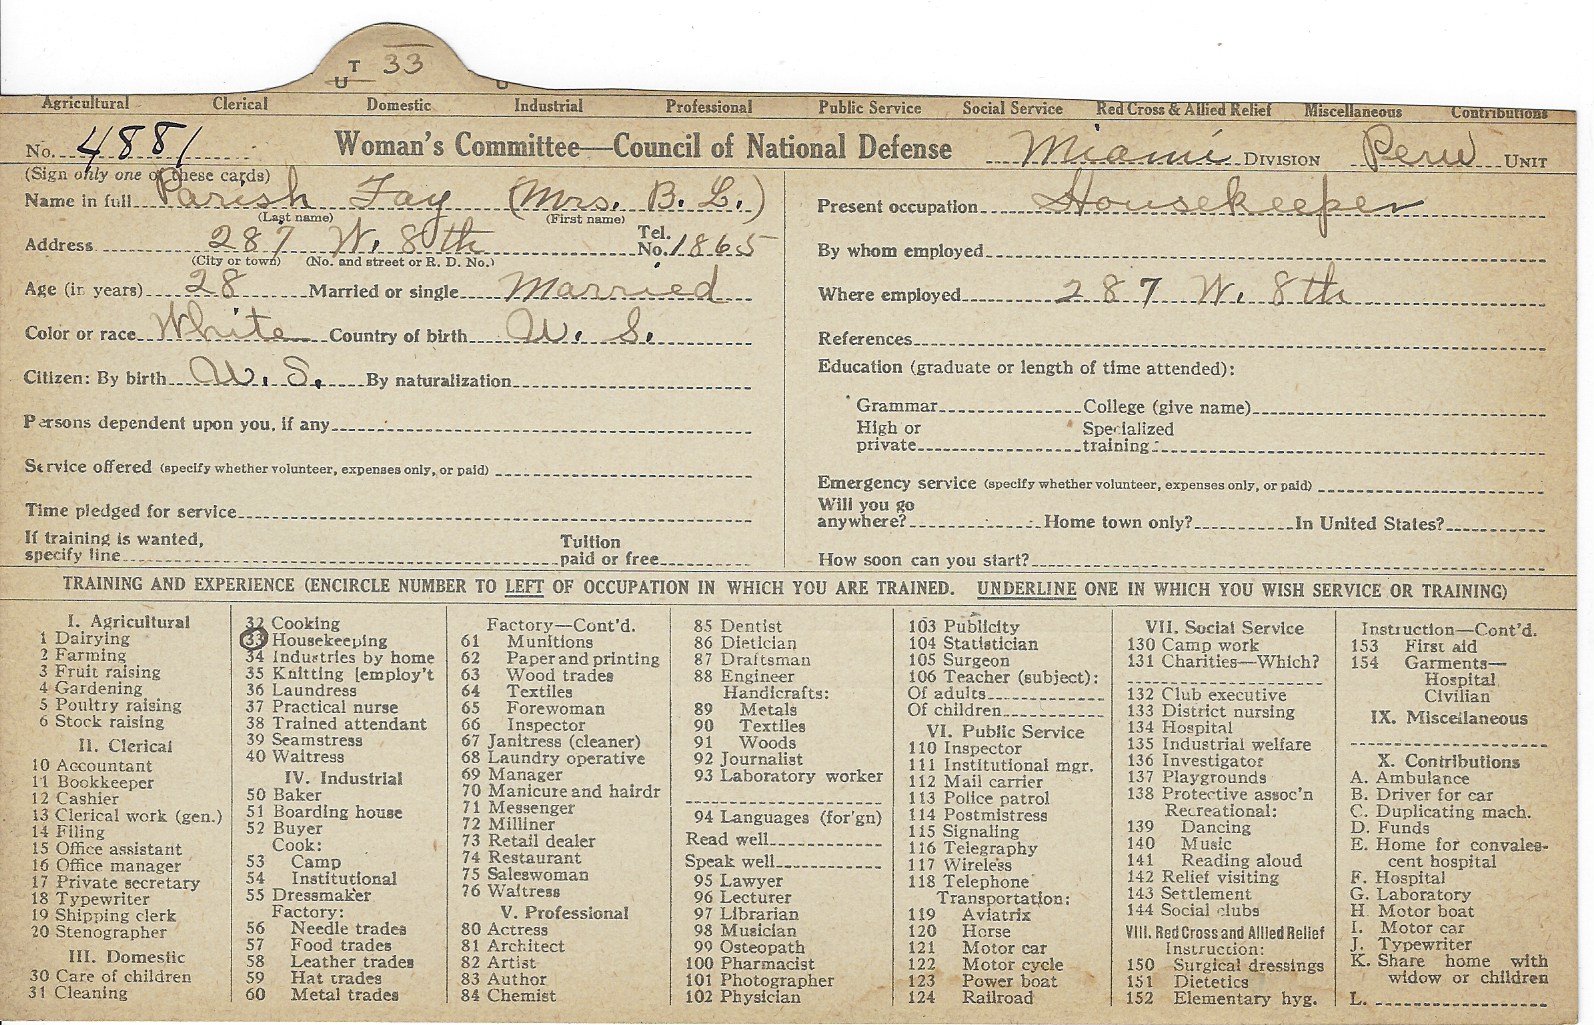 T 33
U
Agricultural Clerical Domestic Industrial Professional Public Service Social Service Red Cross & Allied Relief Miscellaneous Contributions
No. 4881 Woman's Committee—Council of National Defense Miami DIVISION Peru UNIT
(Sign only one of these cards)
Name in full Parish Fay (Mrs. B. L.)
(Last name) (First name)
Address 287 W. 8th Tel. No. 1865
(City or town) (No. and street or R. D. No.)
Age (in years) 28 Married or single Married
Color or race White Country of birth U. S.
Citizen: By birth U. S. By naturalization
Persons dependent upon you, if any
Service offered (specify whether volunteer, expenses only, or paid)
Time pledged for service
If training is wanted,
specify line Tuition paid or free
Present occupation Housekeeper
By whom employed
Where employed 287 W. 8th
References
Education (graduate or length of time attended):
Grammar College (give name)
High or private Specialized training
Emergency service (specify whether volunteer, expenses only, or paid)
Will you go
anywhere? Home town only? In United States?
How soon can you start?
TRAINING AND EXPERIENCE (ENCIRCLE NUMBER TO LEFT OF OCCUPATION IN WHICH YOU ARE TRAINED. UNDERLINE ONE IN WHICH YOU WISH SERVICE OR TRAINING)
I. Agricultural
1 Dairying
2 Farming
3 Fruit raising
4 Gardening
5 Poultry raising
6 Stock raising
II. Clerical
10 Accountant
11 Bookkeeper
12 Cashier
13 Clerical work (gen.)
14 Filing
15 Office assistant
16 Office manager
17 Private secretary
18 Typewriter
19 Shipping clerk
20 Stenographer
III. Domestic
30 Care of children
31 Cleaning
32 Cooking
33 Housekeeping
34 Industries by home
35 Knitting [employ't
36 Laundress
37 Practical nurse
38 Trained attendant
39 Seamstress
40 Waitress
IV. Industrial
50 Baker
51 Boarding house
52 Buyer
Cook:
53 Camp
54 Institutional
55 Dressmaker
Factory:
56 Needle trades
57 Food trades
58 Leather trades
59 Hat trades
60 Metal trades
Factory—Cont'd.
61 Munitions
62 Paper and printing
63 Wood trades
64 Textiles
65 Forewoman
66 Inspector
67 Janitress (cleaner)
68 Laundry operative
69 Manager
70 Manicure and hairdr
71 Messenger
72 Milliner
73 Retail dealer
74 Restaurant
75 Saleswoman
76 Waitress
V. Professional
80 Actress
81 Architect
82 Artist
83 Author
84 Chemist
85 Dentist
86 Dietician
87 Draftsman
88 Engineer
Handicrafts:
89 Metals
90 Textiles
91 Woods
92 Journalist
93 Laboratory worker
94 Languages (for'gn)
Read well
Speak well
95 Lawyer
96 Lecturer
97 Librarian
98 Musician
99 Osteopath
100 Pharmacist
101 Photographer
102 Physician
103 Publicity
104 Statistician
105 Surgeon
106 Teacher (subject):
Of adults
Of children
VI. Public Service
110 Inspector
111 Institutional mgr.
112 Mail carrier
113 Police patrol
114 Postmistress
115 Signaling
116 Telegraphy
117 Wireless
118 Telephone
Transportation:
119 Aviatrix
120 Horse
121 Motor car
122 Motor cycle
123 Power boat
124 Railroad
VII. Social Service
130 Camp work
131 Charities—Which?
132 Club executive
133 District nursing
134 Hospital
135 Industrial welfare
136 Investigator
137 Playgrounds
138 Protective assoc'n
Recreational:
139 Dancing
140 Music
141 Reading aloud
142 Relief visiting
143 Settlement
144 Social clubs
VIII. Red Cross and Allied Relief
Instruction:
150 Surgical dressings
151 Dietetics
152 Elementary hyg.
Instruction—Cont'd.
153 First aid
154 Garments—
Hospital
Civilian
IX. Miscellaneous
X. Contributions
A. Ambulance
B. Driver for car
C. Duplicating mach.
D. Funds
E. Home for convales-
cent hospital
F. Hospital
G. Laboratory
H. Motor boat
I. Motor car
J. Typewriter
K. Share home with
widow or children
L.